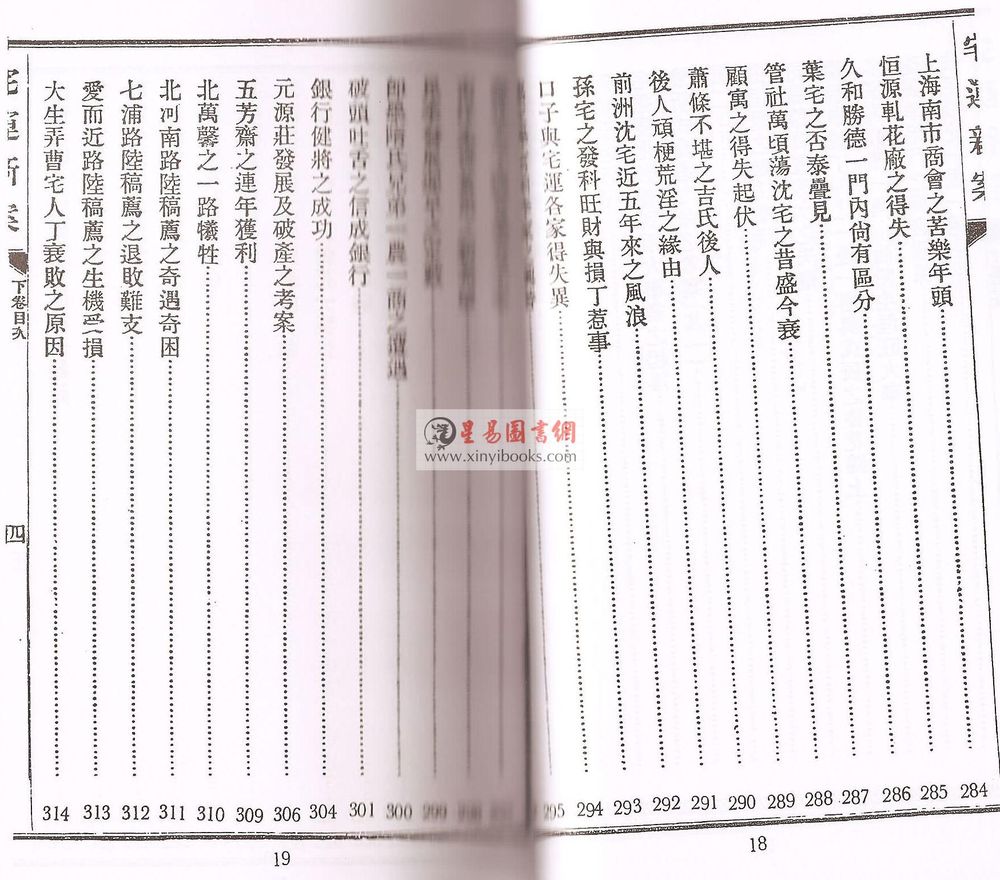 宅運新案
284
上海南市商會之苦樂年頭 285
恒源軋花廠之得失 286
久和勝德一門內尙有區分 287
葉宅之否泰疊見 288
管社萬頃蕩沈宅之昔盛今衰 289
顧寓之得失起伏 290
蕭條不堪之吉氏後人 291
後人頑梗荒淫之緣由 292
前洲沈宅近五年來之風浪 293
孫宅之發科旺財與損丁惹事 294
口子與宅運各家得失異 295
299
兄弟一農一商之遭遇 300
破頭吐舌之信成銀行 301
銀行健將之成功 304
元源莊發展及破產之考案 306
五芳齋之連年獲利 309
北萬馨之一路犧牲 310
北河南路陸稿薦之奇遇奇困 311
七浦路陸稿薦之退敗難支 312
愛而近路陸稿薦之生機受損 313
大生弄曹宅人丁衰敗之原因 314
宅運新案
下卷目次
四
18
19
星易圖書網
www.xinyibooks.com